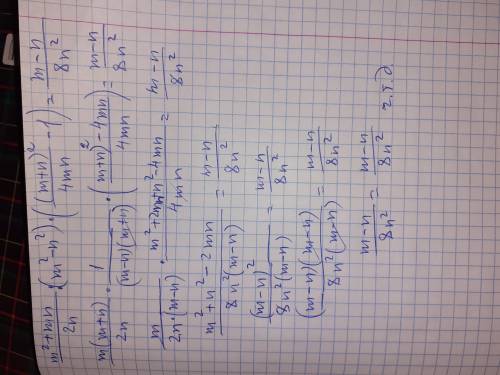 (m²+mn)/(2n) : (m²-n²) · ((m+n)²/(4mn) - 1) = (m-n)/(8n²)
m(m+n)/(2n) · 1/((m-n)(m+n)) · ((m+n)²-4mn)/(4mn) = (m-n)/(8n²)
m/(2n·(m-n)) · (m²+2mn+n²-4mn)/(4mn) = (m-n)/(8n²)
(m²+n²-2mn)/(8n²(m-n)) = (m-n)/(8n²)
(m-n)²/(8n²(m-n)) = (m-n)/(8n²)
(m-n)(m-n)/(8n²(m-n)) = (m-n)/(8n²)
(m-n)/(8n²) = (m-n)/(8n²)
ч.т.д.